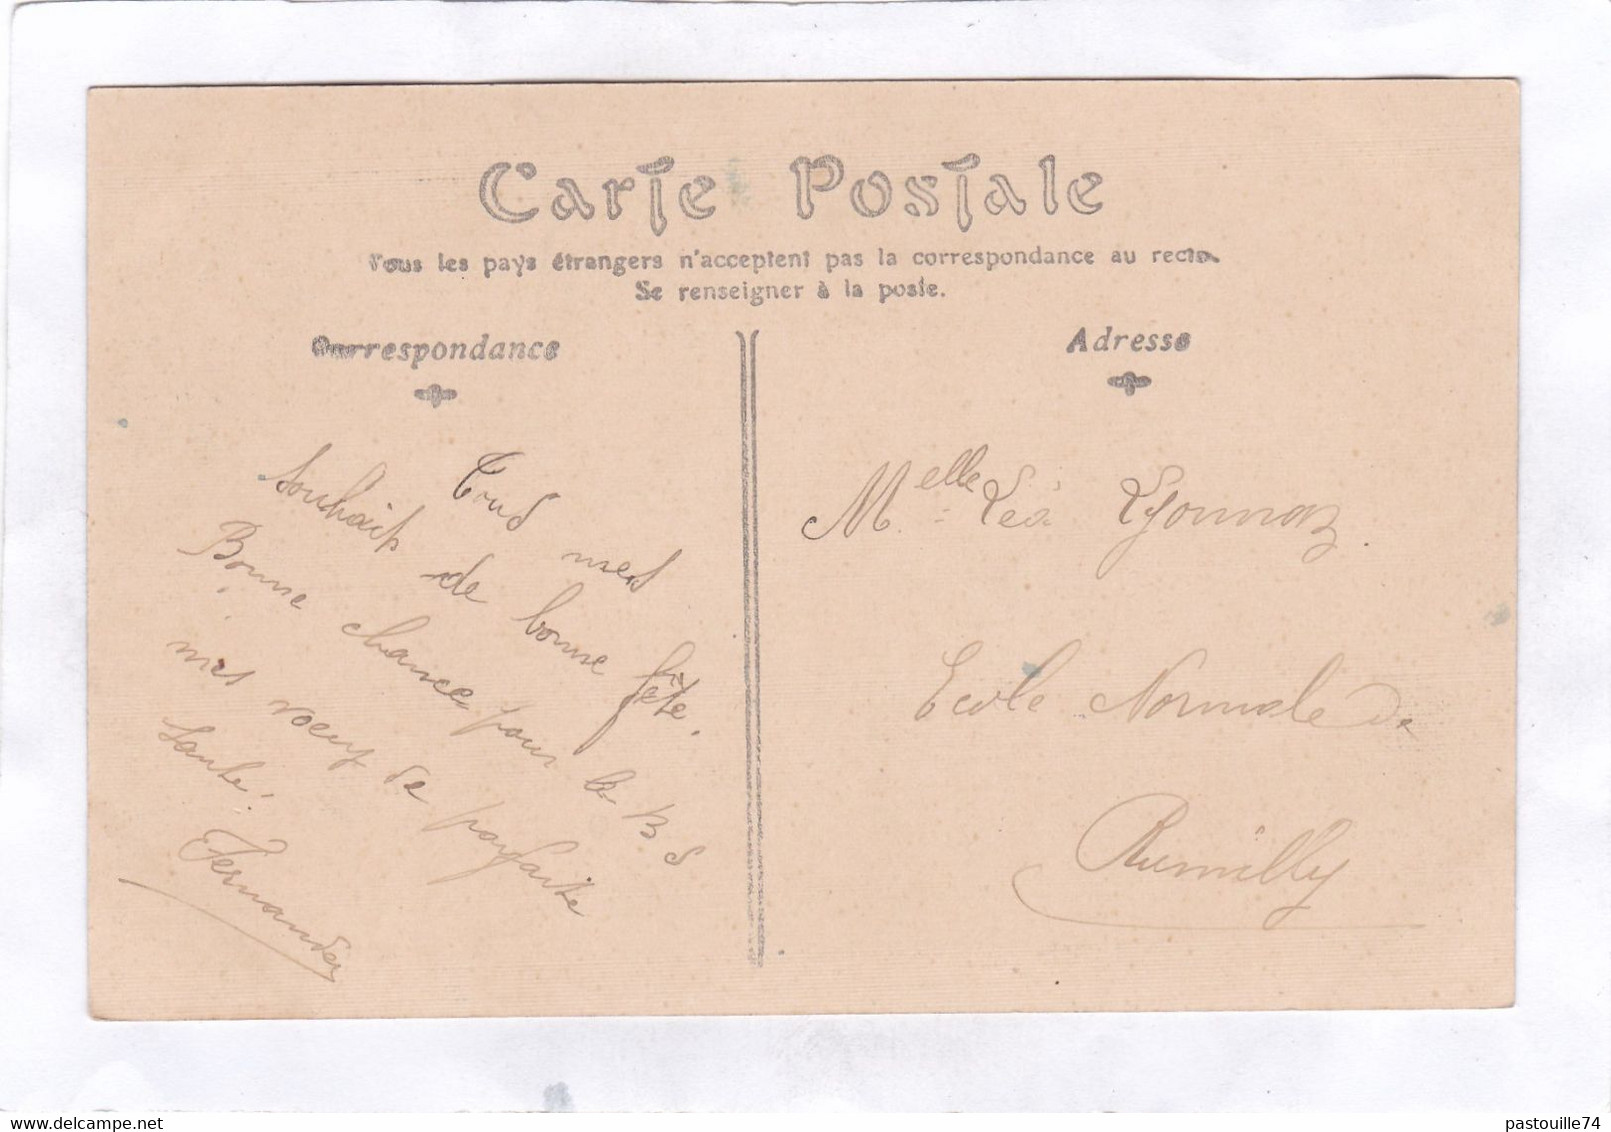 Carte Postale
Tous les pays étrangers n'acceptent pas la correspondance au recto.
Se renseigner à la poste.
Correspondance
Adresse
Tous mes
souhaits de bonne fête.
Bonne chance pour le B S
mes voeux de parfaite
santé.
Fernander
Melle Léa Lyonnaz.
Ecole Normale de
Rumilly
pastouille74